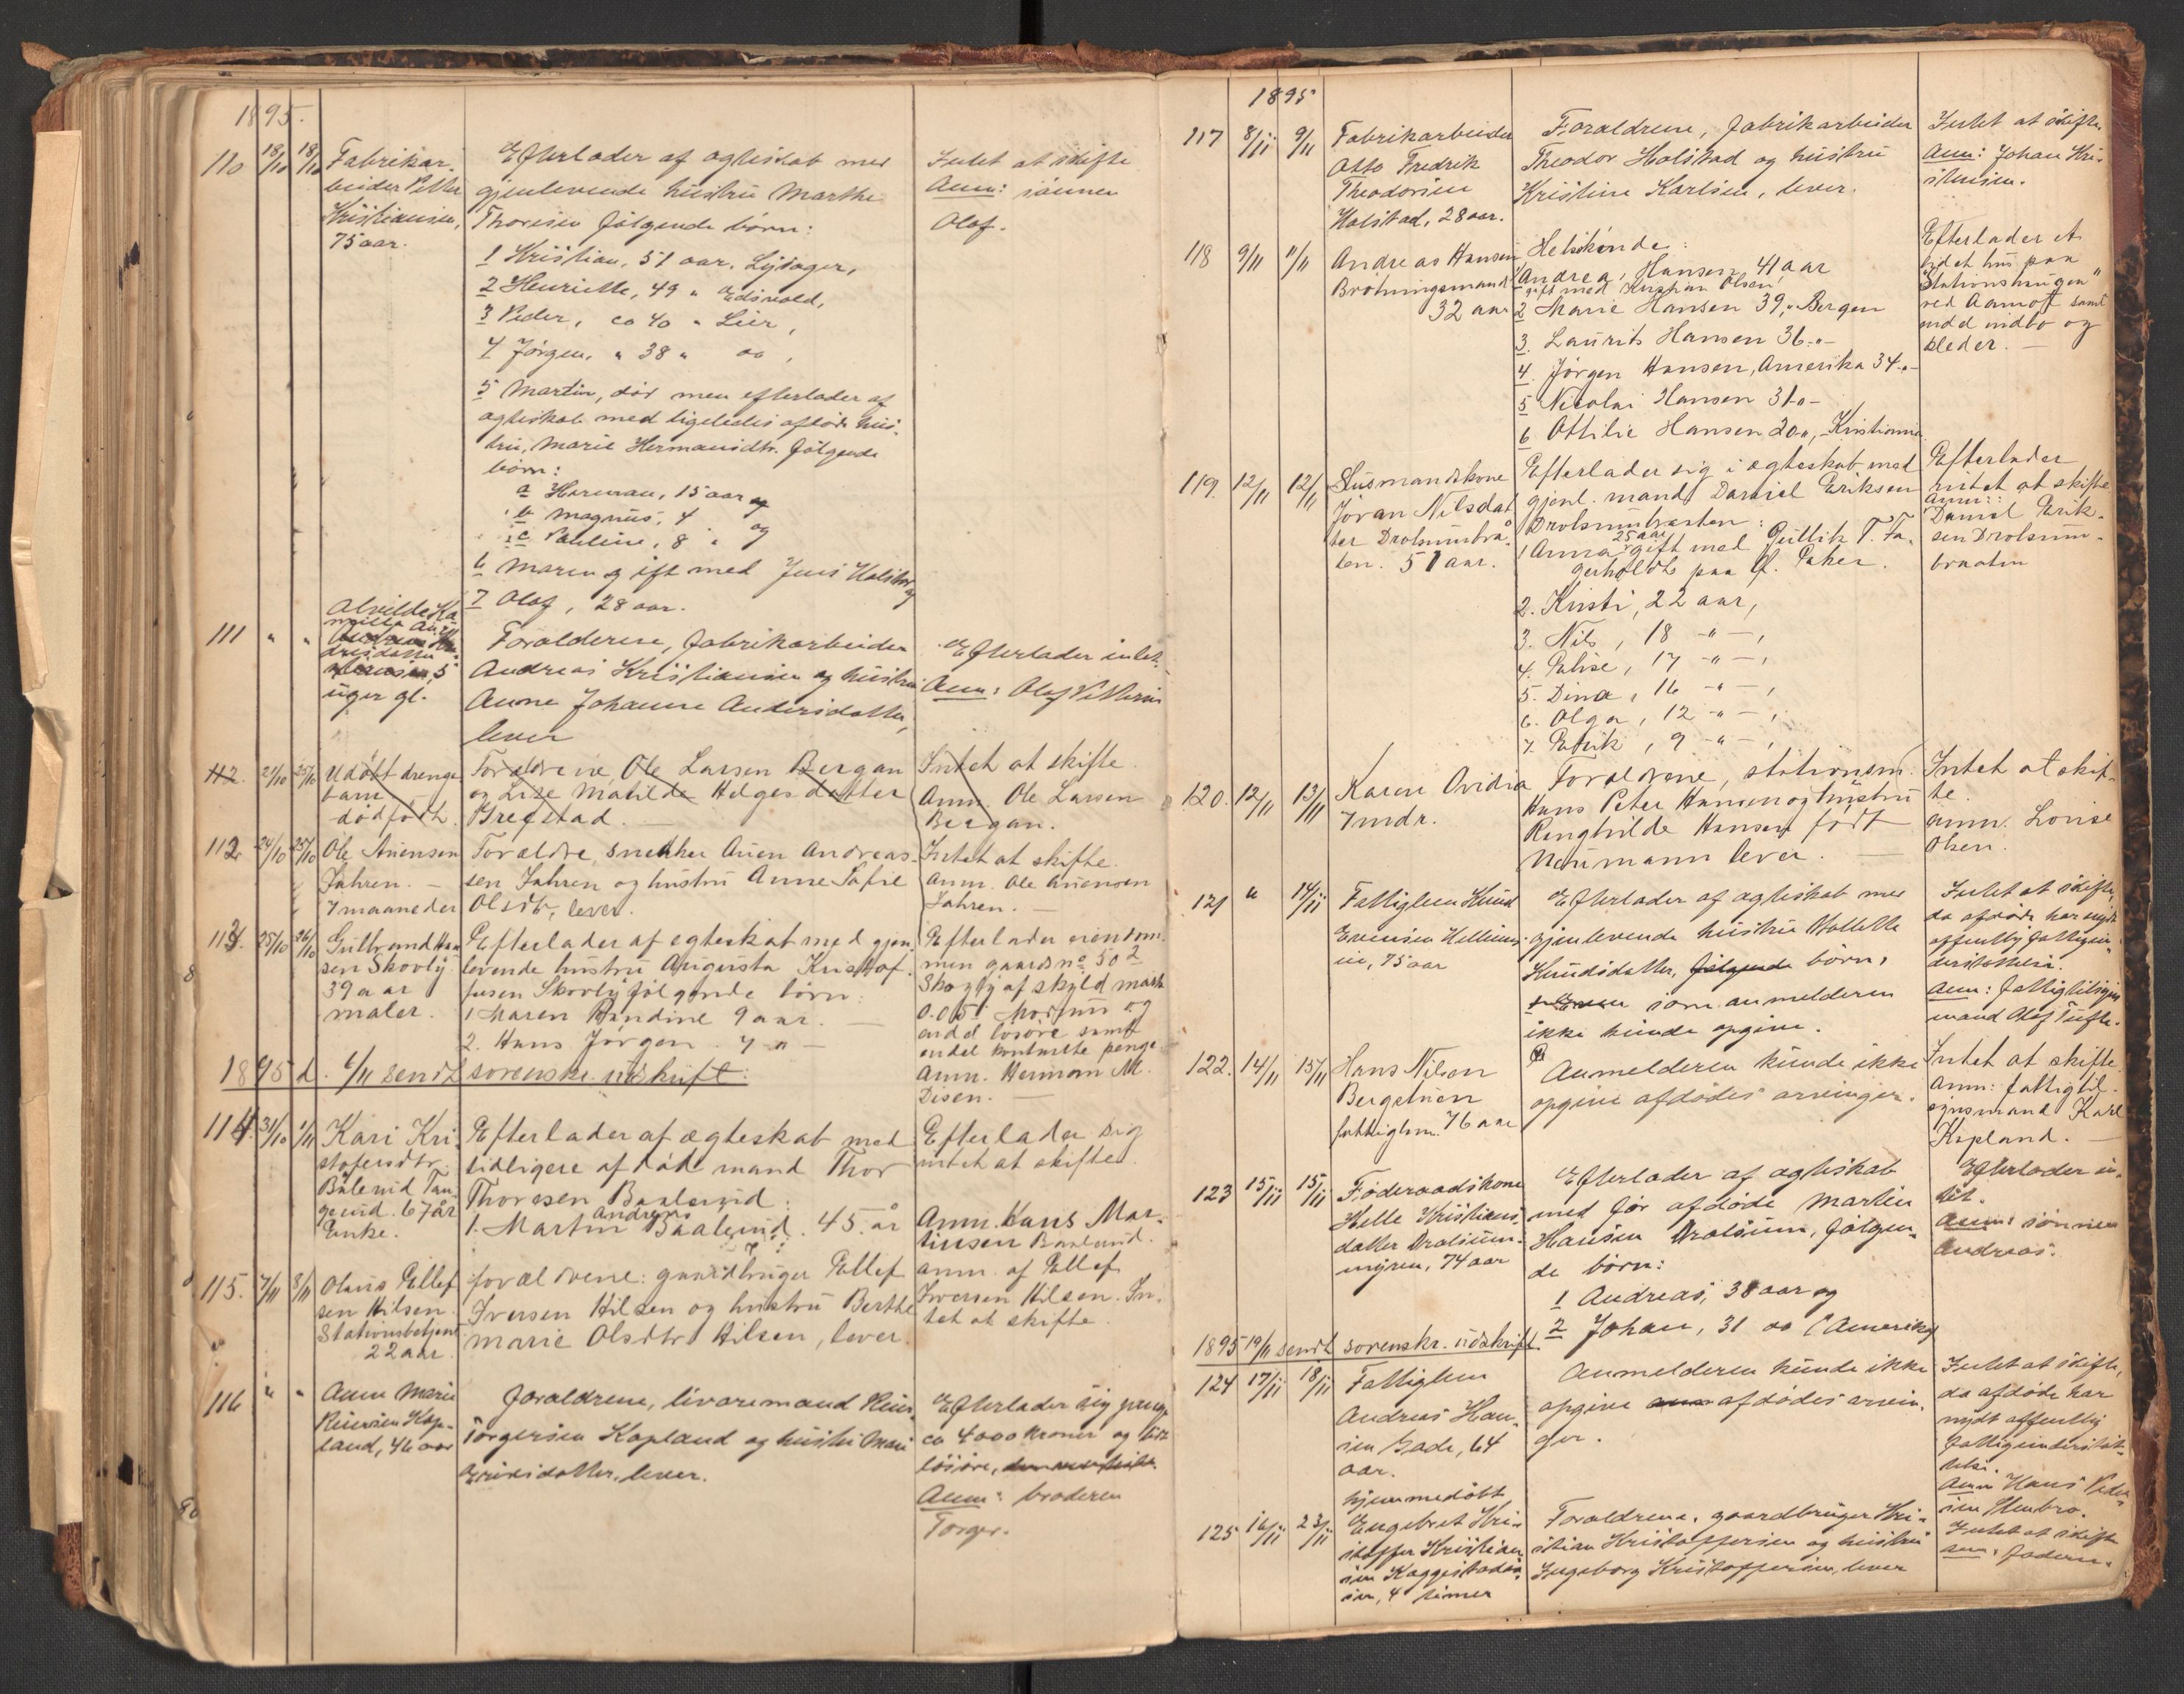 1895.
110 18/10 18/10 Fabrikar-
beider Petter
Kristiansen,
75 aar.
Efterlader af ægteskab med
gjenlevende hustru Marthe
Thoresen følgende børn:
1 Kristian, 51 aar, Lysager,
2 Henriette, 49 " Eidsvold,
3 Peder, ca 40 " Lier,
4 Jørgen, " 38 " do,
5 Martin, død men efterlader af
ægteskab med ligeledes afdøde hus-
tru, Marie Hermansdtr. følgende
børn:
a Herman, 15 aar og
b Magnus, 4
c Pauline, 8 " og
6 Maren gift med Jens Halstad og
7 Olaf, 28 aar.
Intet at skifte
Anm: sønnen
Olaf.
111 " " Alvilde Ka-
milla An-
dreasdatter
5
uger gl.
Forælderene, fabrikarbeider
Andreas Kristiansen og hustru
Anne Johanne Andersdatter,
lever
Efterlader intet.
Anm: Olaf Pettersen
112. 21/10 25/10 Udøbt drenge
barn
dødfødt.
Forældrene Ole Larsen Bergan
og Lise Matilde Helgesdatter
Grefstad.
Intet at skifte.
Anm. Ole Larsen
Bergan.
112 24/10 25/10 Ole Auensen
Jahren. —
7 maaneder
Forældre, snekker Auen Andreas-
sen Jahren og hustru Anne Sofie
Olsdtr, lever.
Intet at skifte.
Anm. Ole Auensen
Jahren. —
113. 25/10 26/10 Gulbrand Han
sen Skovly
39 aar
maler.
Efterlader af egteskab med gjen-
levende hustru Augusta Kristof-
fersen Skovly følgende børn:
1 Maren Randine 9 aar. —
2. Hans Jørgen. 7 " —
Efterlader eiendom-
men gaardsno 50 2
Skogly af skyld mark
0.05 i Modum og
endel løsøre samt
endel kontante penge.
Anm. Herman M.
Disen. —
1895 d. 6/11 sendt sorenskr. udskrift.
114. 31/10 1/11 Kari Kri
stofersdtr.
Bålerud Tan-
gerud. 67 år
Enke.
Efterlader af ægteskab med
tidligere afdøde mand Thor
Thoresen Baalerud:
1. Martin Andreas Baalerud. 45. år
Efterlader sig
intet at skifte.
Anm. Hans Mar-
tinsen Baalerud.
115. 7/11 8/11 Olaus Ellef
sen Hilsen.
Stationsbetjent
22 aar.
forældrene: gaardbruger Ellef
Iversen Hilsen og hustru Berthe
Marie Olsdtr Hilsen, lever.
anm. af Ellef
Iversen Hilsen. In-
tet at skifte.
116 " " Anne Marie
Reiersen Kop-
land, 46 aar
forældrene, livøremand Reier
Torgersen Kopland og hustru Mari
Eriksdatter, lever.
Efterlader sig penge
ca 4000 kroner og lidt
løsøre,
Anm: broderen
Torger.
1895
117 8/11 9/11 Fabrikarbeider
Otto Fredrik
Theodorsen
Halstad, 28 aar.
Forældrene, fabrikarbeider
Theodor Halstad og hustru
Kristine Karlsen, lever.
Intet at skifte.
Anm: Johan Kri-
stensen.
118 9/11 11/11 Andreas Hansen
Brotningsmand
32 aar
Helsøskende:
1 Andrea Hansen 41 aar
gift med Kristian Olsen
2 Marie Hansen 39 " Bergen
3. Laurits Hansen 36 -"-
4. Jørgen Hansen, Amerika 34 -"-
5 Nicolai Hansen 31 -"-
6 Ottilie Hansen 20 ", Kristiania
Efterlader et
lidet hus paa
"Stationshaugen"
ved Aamot samt
indbo og
kleder. —
119. 12/11 12/11 Husmandskone
Jøran Nilsdat
ter Drolsumbrå-
ten. 51 aar.
Efterlader sig i ægteskab med
gjenl. mand Daniel Eriksen
Drolsumbraaten:
1 Anna 25 aar gift med Gullik T. Fa-
gerholdt paa Ø. Eker.
2. Kristi, 22 aar,
3. Nils, 18 -"-,
4. Elise, 17 -"-,
5. Dina, 16 -"-,
6. Olga, 12 -"-,
7. Erik, 9 -"-,
Efterlader
intet at skifte
Anm:
Daniel Erik-
sen Drolsum-
braaten
120. 12/11 13/11 Karen Ovidia
7 mdr.
Forældrene, stationsm.
Hans Peter Hansen og hustru
Ranghilde Hansen født
Naumann lever. —
Intet at skif-
te.
anm. Lovise
Olsen.
121 " 14/11 Fattiglem Knud
Evensen Hellerud-
eie, 75 aar
Efterlader af ægteskab med
gjenlevende hustru Hollette
Knudsdatter, følgende børn,
som anmelderen
ikke kunde opgive.
Intet at skifte,
da afdøde har nydt
offentlig fattigun-
derstøttelse.
Anm: fattigtilsyns
mand Olaf Tufte.
122. 14/11 15/11 Hans Nilsen
Bergstuen
fattiglem. 76 aar
Anmelderen kunde ikke
opgive afdødes arvinger.
Intet at skifte.
Anm: fattigtil-
synsmand Karl
Kopland. —
123 15/11 15/11 Føderaadskone
Helle Kristians-
datter Drolsum-
myren, 74 aar
Efterlader af ægteskab
med før afdøde Martin
Hansen Drolsum, følgen-
de børn:
1 Andreas, 38 aar og
2 Johan, 31 do (Amerika)
Efterlader in-
tet.
Anm: sønnen
Andreas.
1895 19/11 sendt sorenskr. udskrift.
124 17/11 18/11 Fattiglem
Andreas Han-
sen Gade, 64
aar.
Anmelderen kunde ikke
opgive afdødes arvin-
ger.
Intet at skifte,
da afdøde har
nydt offentlig
fattigunderstøt-
telse.
Anm Hans Peder-
sen Stenbro.
125 16/11 23/11 hjemmedøbt
Engebret Kri-
stoffer Kristian
sen Kaggestadsæ
, 4 timer
Forældrene, gaardbruger Kri-
stian Kristoffersen og hustru
Ingeborg Kristoffersen, lever
Intet at skifte
Anm. faderen.